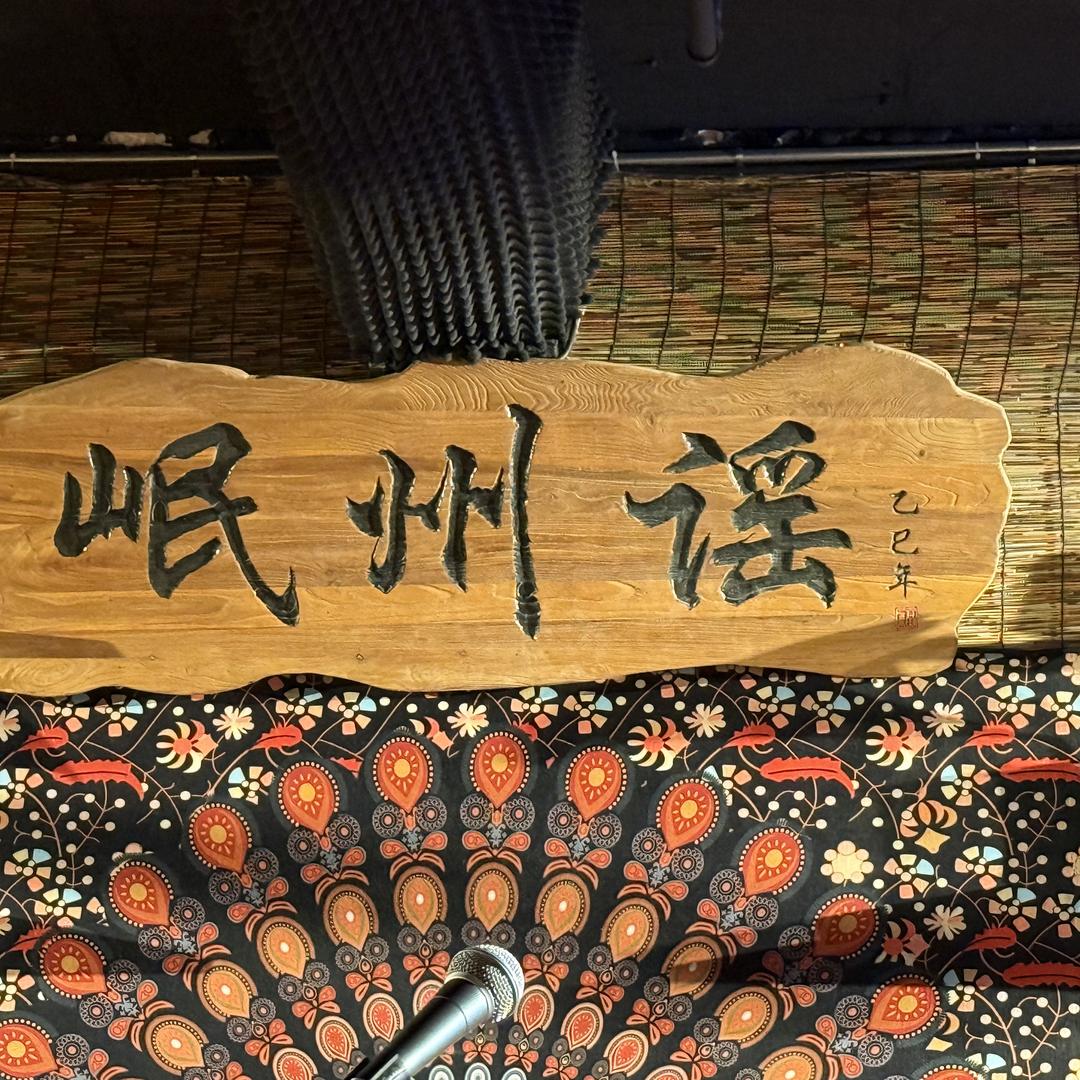 岷州谣
乙巳年